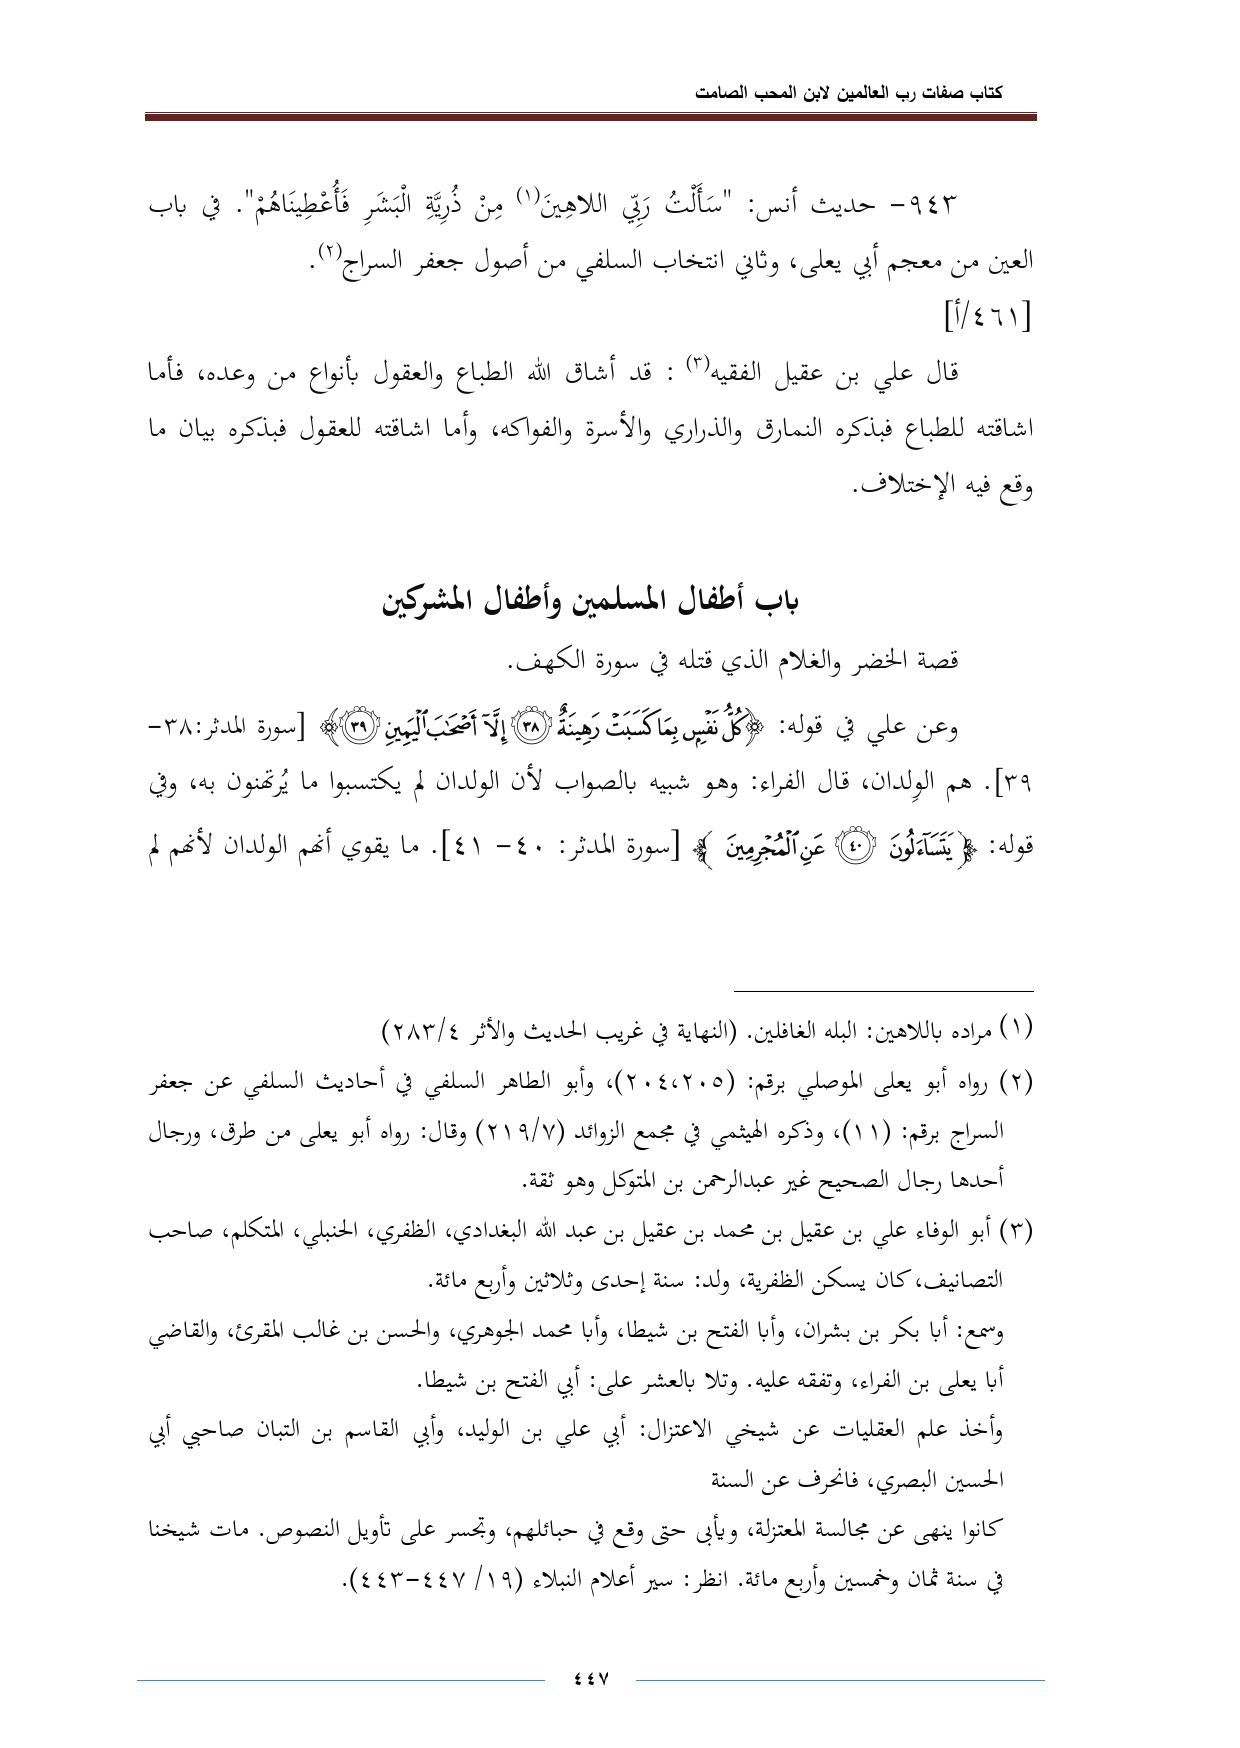 كتاب صفات رب العالمين لابن المحب الصامت
٩٤٣- حديث أنس: "سَأَلْتُ رَبِّي اللاهِينَ(١) مِنْ ذُرِيَّةِ الْبَشَرِ فَأُعْطِينَاهُمْ". في باب
العين من معجم أبي يعلى، وثاني انتخاب السلفي من أصول جعفر السراج(٢).
[٤٦١/أ]
قال علي بن عقيل الفقيه(٣) : قد أشاق الله الطباع والعقول بأنواع من وعده، فأما
اشاقته للطباع فبذكره النمارق والذراري والأسرة والفواكه، وأما اشاقته للعقول فبذكره بيان ما
وقع فيه الإختلاف.
باب أطفال المسلمين وأطفال المشركين
قصة الخضر والغلام الذي قتله في سورة الكهف.
وعن علي في قوله: ﴿كُلُّ نَفْسٍ بِمَا كَسَبَتْ رَهِينَةٌ ٣٨ إِلَّآ أَصْحَٰبَ ٱلْيَمِينِ ٣٩﴾ [سورة المدثر:٣٨-
٣٩]. هم الوِلدان، قال الفراء: وهو شبيه بالصواب لأن الولدان لم يكتسبوا ما يُرتهنون به، وفي
قوله: ﴿يَتَسَآءَلُونَ ٤٠ عَنِ ٱلْمُجْرِمِينَ﴾ [سورة المدثر: ٤٠- ٤١]. ما يقوي أنهم الولدان لأنهم لم
(١) مراده باللاهين: البله الغافلين. (النهاية في غريب الحديث والأثر ٢٨٣/٤)
(٢) رواه أبو يعلى الموصلي برقم: (٢٠٤،٢٠٥)، وأبو الطاهر السلفي في أحاديث السلفي عن جعفر
السراج برقم: (١١)، وذكره الهيثمي في مجمع الزوائد (٢١٩/٧) وقال: رواه أبو يعلى من طرق، ورجال
أحدها رجال الصحيح غير عبدالرحمن بن المتوكل وهو ثقة.
(٣) أبو الوفاء علي بن عقيل بن محمد بن عقيل بن عبد الله البغدادي، الظفري، الحنبلي، المتكلم، صاحب
التصانيف، كان يسكن الظفرية، ولد: سنة إحدى وثلاثين وأربع مائة.
وسمع: أبا بكر بن بشران، وأبا الفتح بن شيطا، وأبا محمد الجوهري، والحسن بن غالب المقرئ، والقاضي
أبا يعلى بن الفراء، وتفقه عليه. وتلا بالعشر على: أبي الفتح بن شيطا.
وأخذ علم العقليات عن شيخي الاعتزال: أبي علي بن الوليد، وأبي القاسم بن التبان صاحبي أبي
الحسين البصري، فانحرف عن السنة
كانوا ينهى عن مجالسة المعتزلة، ويأبى حتى وقع في حبائلهم، وتجسر على تأويل النصوص. مات شيخنا
في سنة ثمان وخمسين وأربع مائة. انظر: سير أعلام النبلاء (١٩/ ٤٤٧-٤٤٣).
٤٤٧